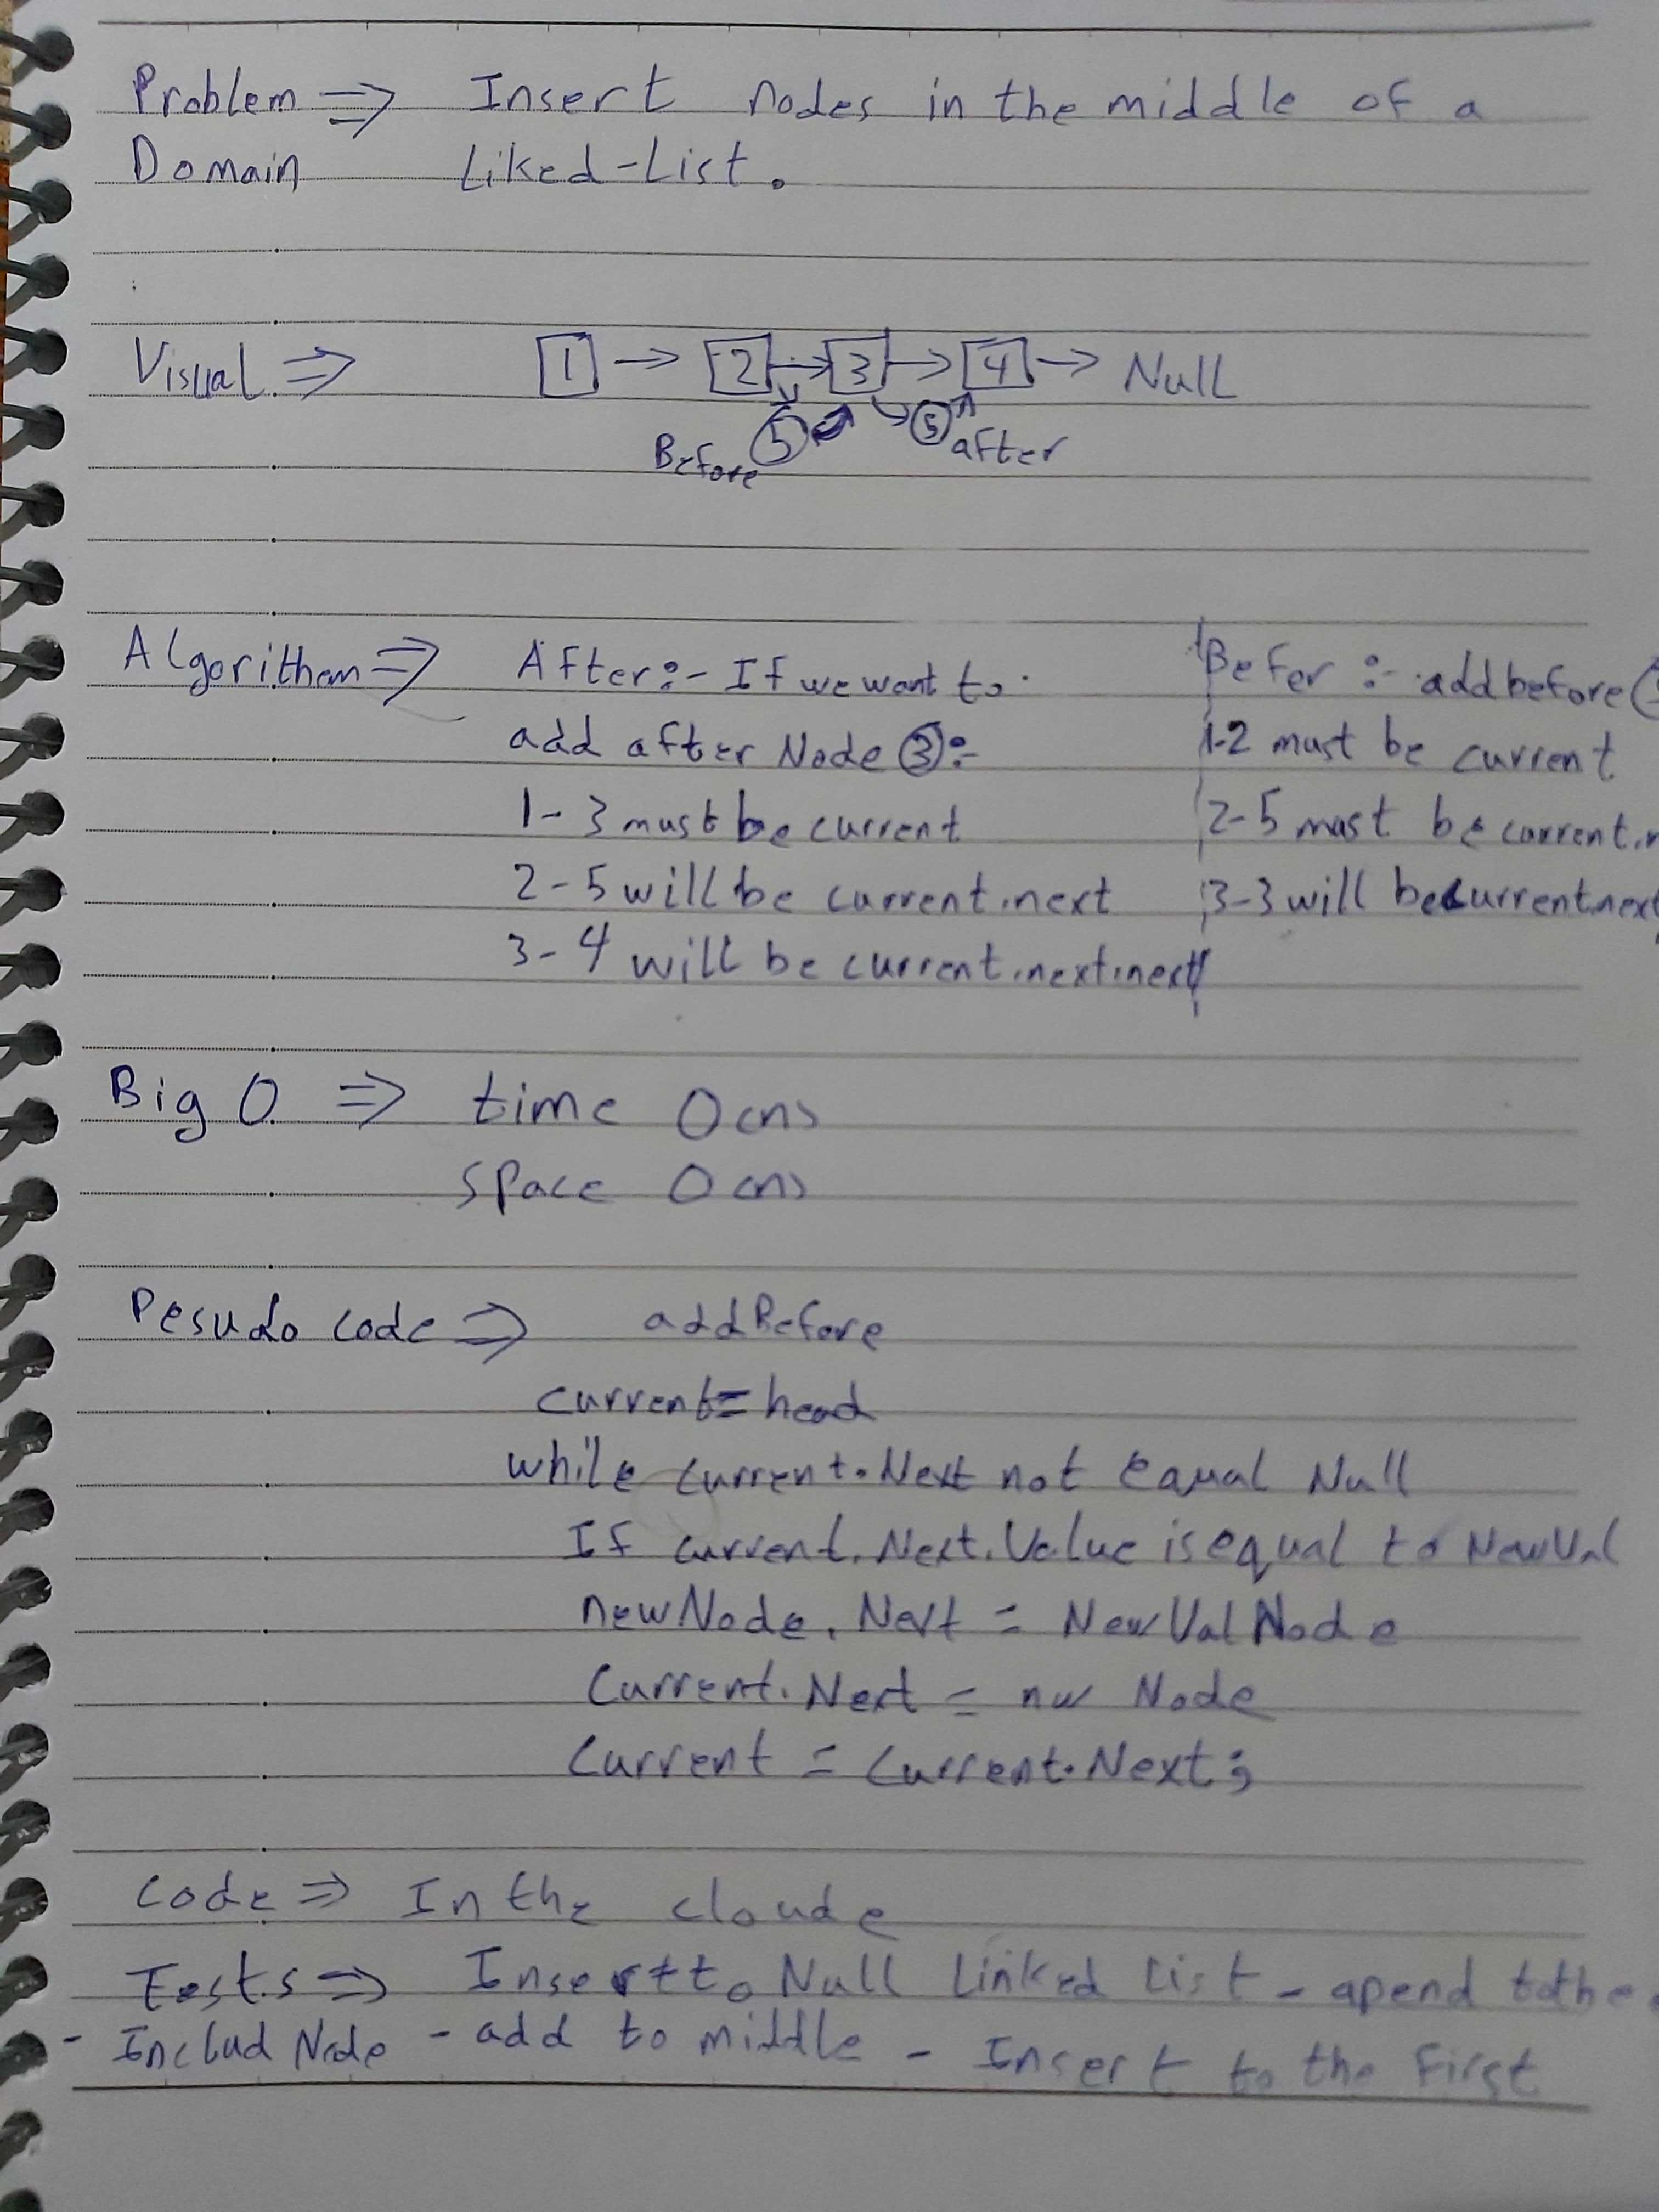 Problem ⇒ Insert nodes in the middle of a
Domain Liked-List.
Visual ⇒ 1 → 2 → 3 → 4 → Null
Before 5 5 after
Algorithem ⇒ After:- If we want to
add after Node 3:-
1- 3 must be current
2- 5 will be current.next
3- 4 will be current.next.next
Befer :- add before (
1-2 must be current
2-5 mast be current.n
3-3 will be current.next
Big O ⇒ time O(n)
space O(n)
Pesudo code ⇒ addBefore
current = head
while current.Next not equal Null
If current.Next.Value is equal to NewVal
newNode.Next = NewValNode
Current.Next = nw Node
Current = Current.Next;
Code ⇒ In the cloude
Tests ⇒ Insert to Null Linked List - apend to the
- Includ Node - add to middle - Insert to the First